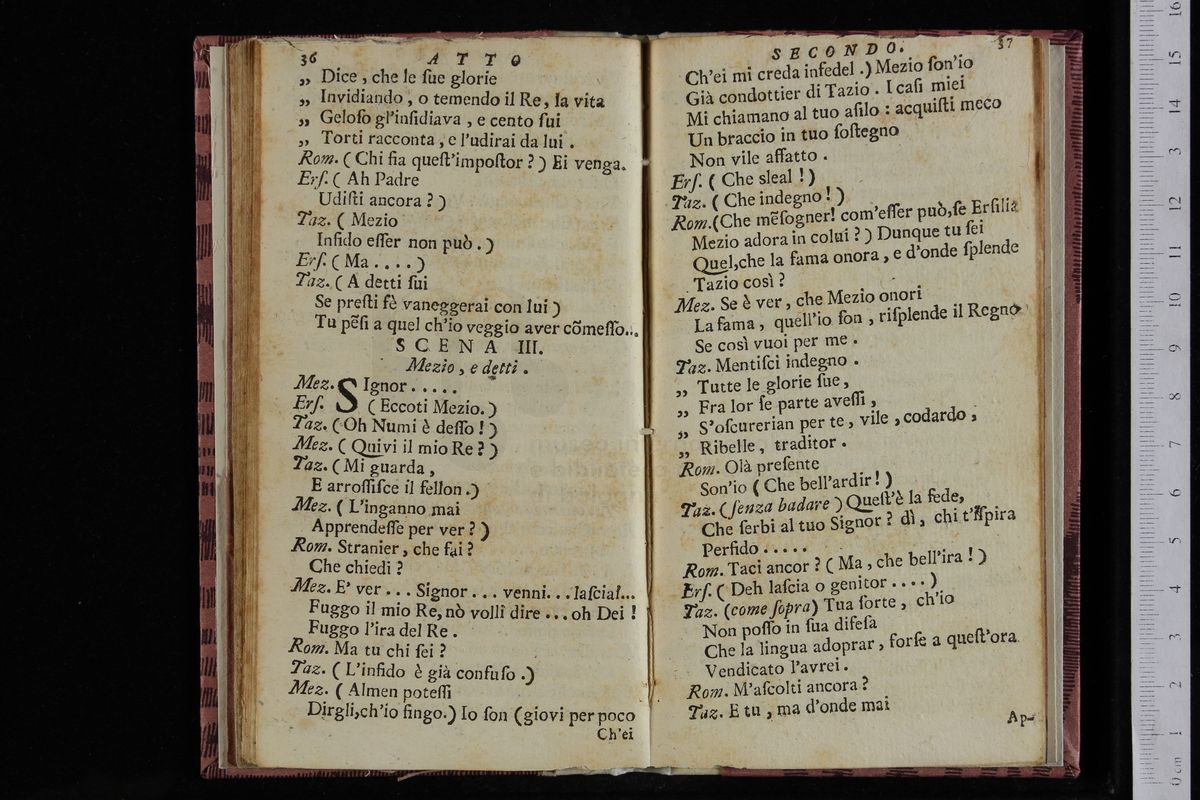 36 ATTO
„ Dice , che le ſue glorie
„ Invidiando , o temendo il Re, la vita
„ Geloſo gl'inſidiava , e cento ſui
„ Torti racconta , e l'udirai da lui .
Rom. ( Chi ſia queſt'impoſtor ? ) Ei venga.
Erſ. ( Ah Padre
Udiſti ancora ? )
Taz. ( Mezio
Infido eſſer non può . )
Erſ. ( Ma . . . . )
Taz. ( A detti ſui
Se preſti fè vaneggerai con lui )
Tu pẽſi a quel ch'io veggio aver cõmeſſo...
SCENA III.
Mezio , e detti .
Mez. SIgnor . . . . .
Erſ. ( Eccoti Mezio. )
Taz. ( Oh Numi è deſſo ! )
Mez. ( Quivi il mio Re ? )
Taz. ( Mi guarda ,
E arroſſiſce il fellon .)
Mez. ( L'inganno mai
Apprendeſſe per ver ? )
Rom. Stranier , che fai ?
Che chiedi ?
Mez. E' ver . . . Signor . . . venni. . . laſciai...
Fuggo il mio Re, nò volli dire . . . oh Dei !
Fuggo l'ira del Re .
Rom. Ma tu chi ſei ?
Taz. ( L'infido è già confuſo .)
Mez. ( Almen poteſſi
Dirgli,ch'io fingo.) Io ſon (giovi per poco
Ch'ei
SECONDO. 37
Ch'ei mi creda infedel .) Mezio ſon'io
Già condottier di Tazio . I caſi miei
Mi chiamano al tuo aſilo : acquiſti meco
Un braccio in tuo ſoſtegno
Non vile affatto .
Erſ. ( Che sleal ! )
Taz. ( Che indegno ! )
Rom.(Che mẽſogner! com'eſſer può,ſe Erſilia
Mezio adora in colui ? ) Dunque tu ſei
Quel,che la fama onora , e d'onde ſplende
Tazio così ?
Mez. Se è ver , che Mezio onori
La fama , quell'io ſon , riſplende il Regno
Se così vuoi per me .
Taz. Mentiſci indegno .
„ Tutte le glorie ſue ,
„ Fra lor ſe parte aveſſi ,
„ S'oſcurerian per te , vile , codardo ,
„ Ribelle , traditor .
Rom. Olà preſente
Son'io ( Che bell'ardir ! )
Taz. (ſenza badare ) Queſt'è la fede,
Che ſerbi al tuo Signor ? dì , chi t'iſpira
Perfido . . . . .
Rom. Taci ancor ? ( Ma , che bell'ira ! )
Erſ. ( Deh laſcia o genitor . . . . )
Taz. (come ſopra) Tua ſorte , ch'io
Non poſſo in ſua difeſa
Che la lingua adoprar , forſe a queſt'ora
Vendicato l'avrei .
Rom. M'aſcolti ancora ?
Taz. E tu , ma d'onde mai
Ap-
0 cm 1 2 3 4 5 6 7 8 9 10 11 12 3 14 15 16